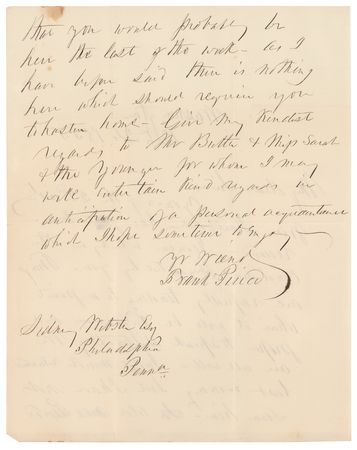 that you would probably be
here the last of the week - as I
have before said there is nothing
here which should require you
to hasten home - Give my kindest
regards to Mr Butler & Miss Sarah
& the younger for whom I may
well entertain kind regards in
anticipation of a personal acquaintance
which I hope sometime to enjoy
Yr friend
Frank Pierce
Sidney Webster Esq
Philadelphia
Penna